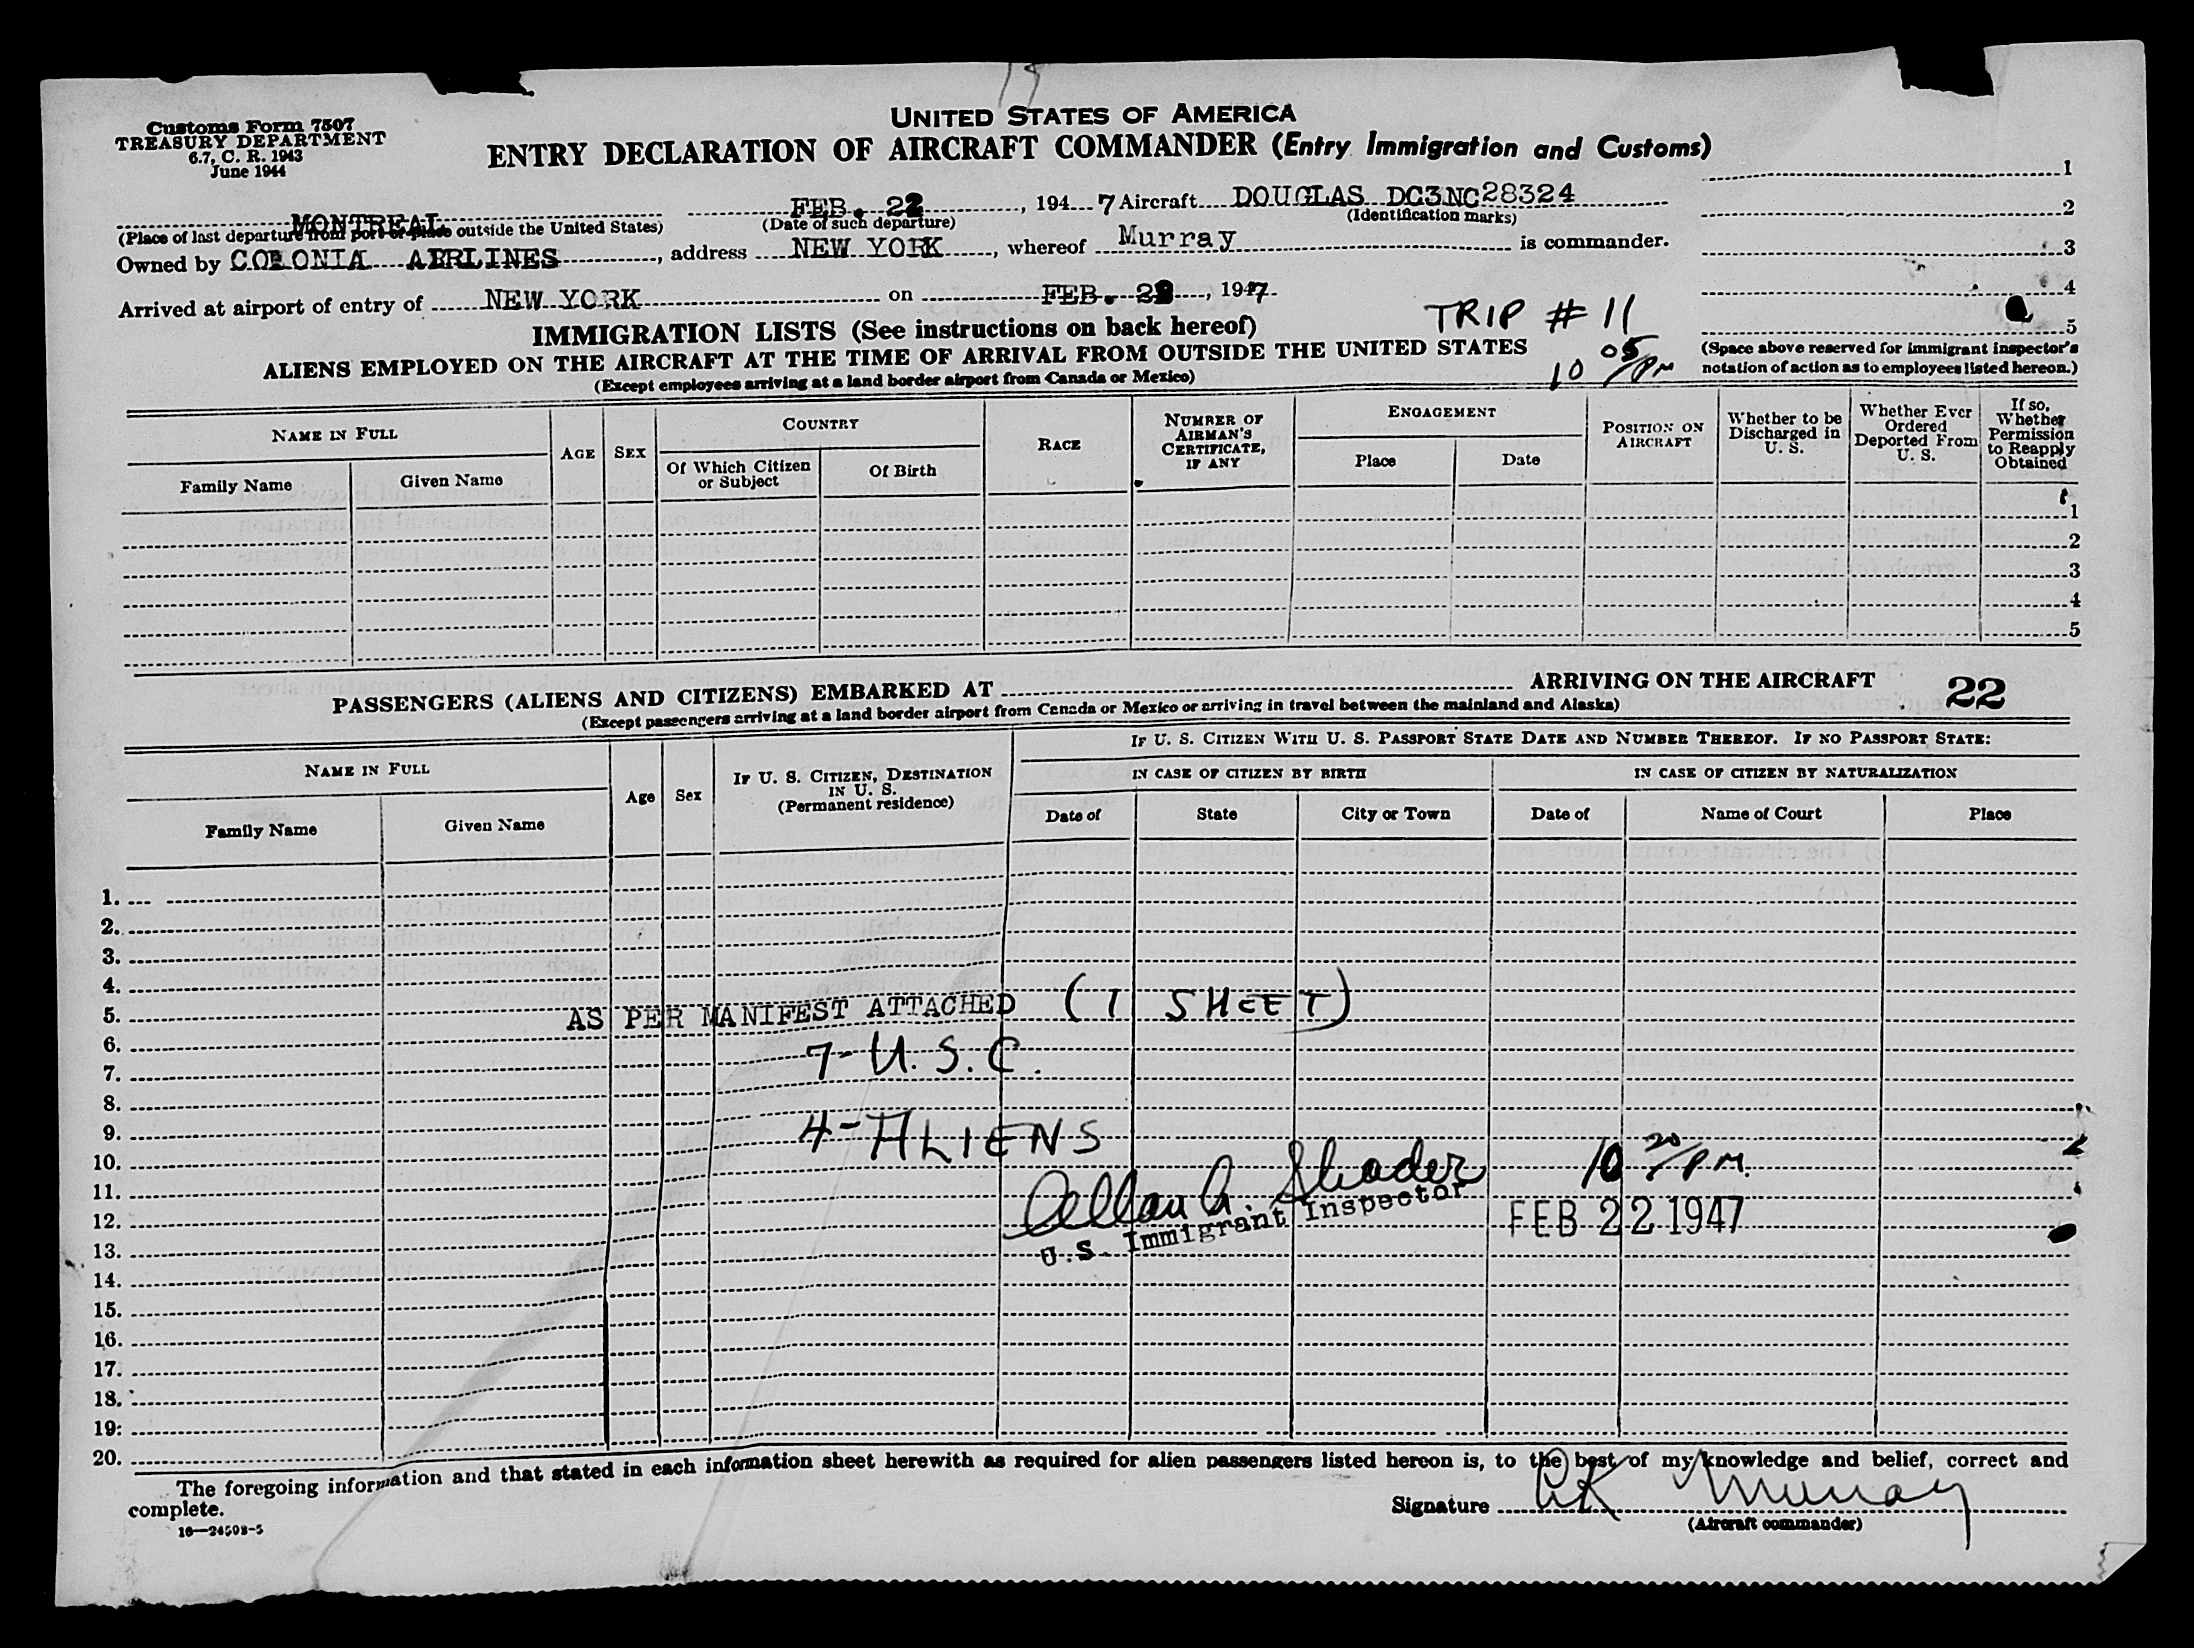 Customs Form 7507
TREASURY DEPARTMENT
6.7, C. R. 1943
June 1944
UNITED STATES OF AMERICA
ENTRY DECLARATION OF AIRCRAFT COMMANDER (Entry Immigration and Customs)
MONTREAL FEB. 22, 1947 Aircraft DOUGLAS DC3 NC28324
(Place of last departure from port or place outside the United States) (Date of such departure) (Identification marks)
Owned by COLONIA AIRLINES, address NEW YORK, whereof Murray is commander.
Arrived at airport of entry of NEW YORK on FEB. 22, 1947
1
2
3
4
5
(Space above reserved for immigrant inspector's
notation of action as to employees listed hereon.)
TRIP # 11
10 05/PM
IMMIGRATION LISTS (See instructions on back hereof)
ALIENS EMPLOYED ON THE AIRCRAFT AT THE TIME OF ARRIVAL FROM OUTSIDE THE UNITED STATES
(Except employees arriving at a land border airport from Canada or Mexico)
NAME IN FULL
Family Name
Given Name
AGE
SEX
COUNTRY
Of Which Citizen or Subject
Of Birth
RACE
NUMBER OF AIRMAN'S CERTIFICATE, IF ANY
ENGAGEMENT
Place
Date
POSITION ON AIRCRAFT
Whether to be Discharged in U. S.
Whether Ever Ordered Deported From U. S.
If so, Whether Permission to Reapply Obtained
1
2
3
4
5
PASSENGERS (ALIENS AND CITIZENS) EMBARKED AT ARRIVING ON THE AIRCRAFT 22
(Except passengers arriving at a land border airport from Canada or Mexico or arriving in travel between the mainland and Alaska)
NAME IN FULL
Family Name
Given Name
Age
Sex
IF U. S. CITIZEN, DESTINATION IN U. S.
(Permanent residence)
IF U. S. CITIZEN WITH U. S. PASSPORT STATE DATE AND NUMBER THEREOF. IF NO PASSPORT STATE:
IN CASE OF CITIZEN BY BIRTH
Date of
State
City or Town
IN CASE OF CITIZEN BY NATURALIZATION
Date of
Name of Court
Place
1.
2.
3.
4.
5. AS PER MANIFEST ATTACHED (1 SHEET)
6.
7. 7-U.S.C.
8.
9. 4-ALIENS
10. 10 20/PM.
11. Allan A. Shader
12. U.S. Immigrant Inspector FEB 22 1947
13.
14.
15.
16.
17.
18.
19.
20.
The foregoing information and that stated in each information sheet herewith as required for alien passengers listed hereon is, to the best of my knowledge and belief, correct and
complete.
16—24598-5
Signature CK Murray
(Aircraft commander)